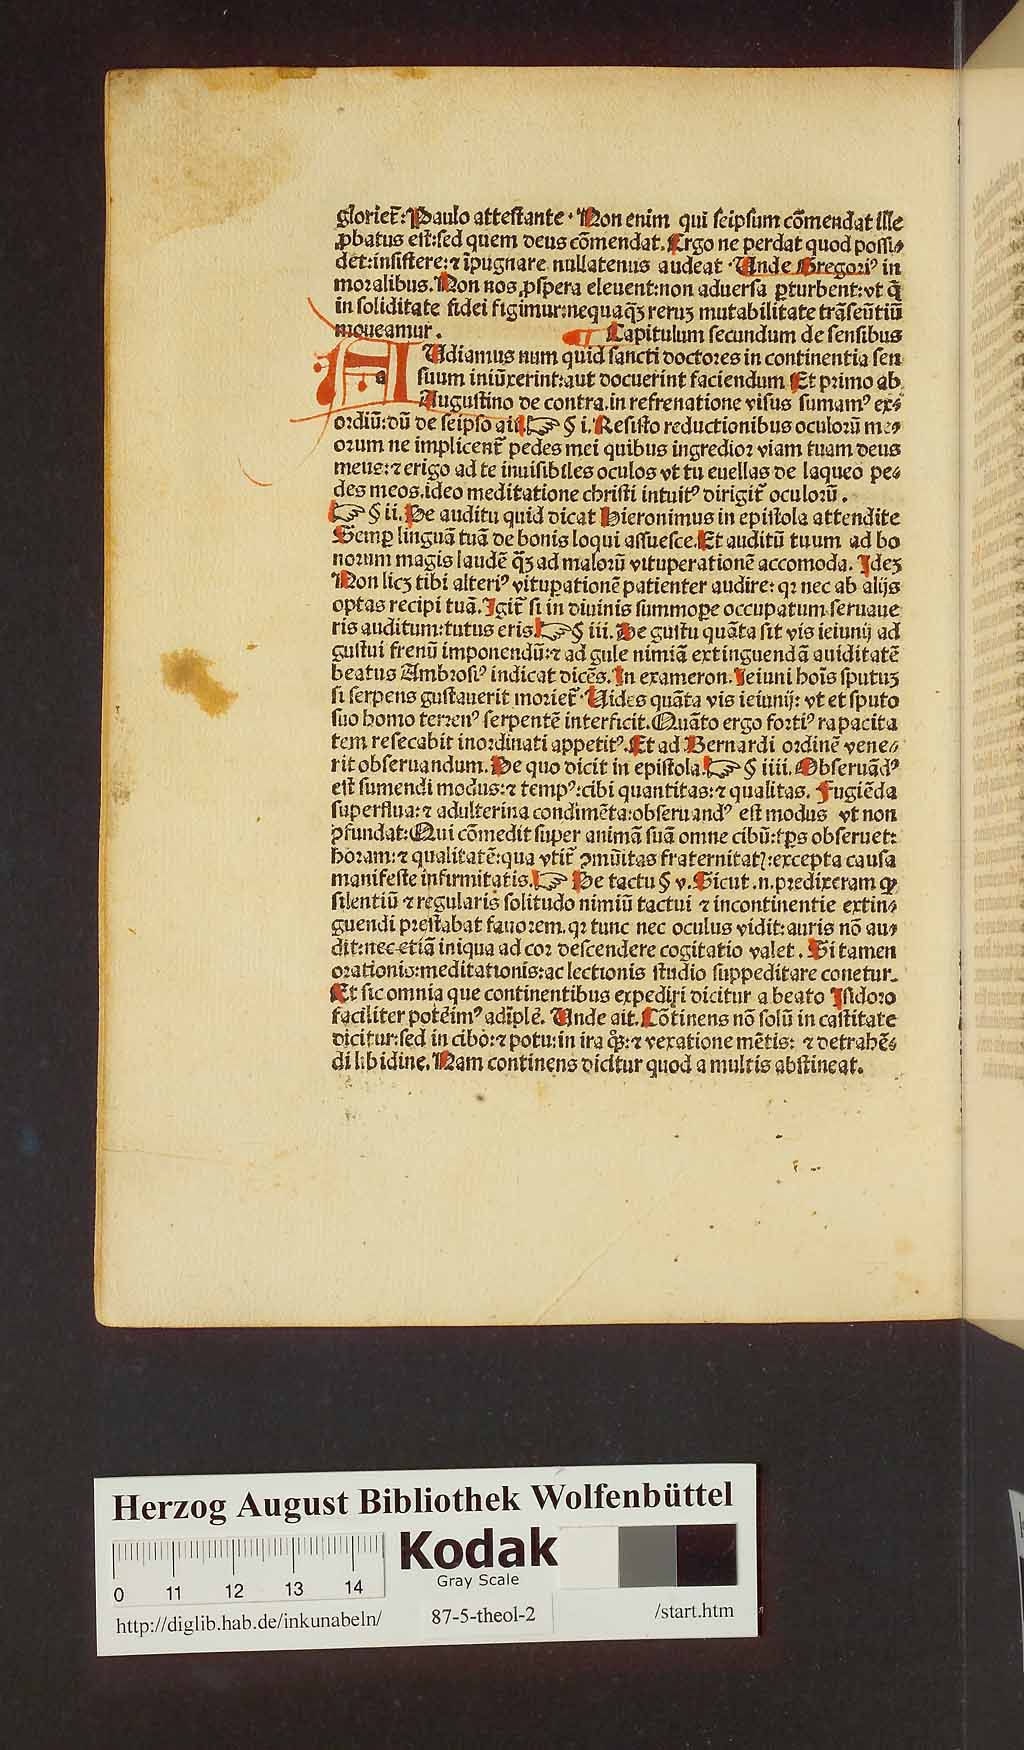 gloriet᷑: Paulo attestante. Non enim qui seipsum cōmendat ille
ꝓbatus est: sed quem deus cōmendat. Ergo ne perdat quod possi⸗
det: insistere: ⁊ īpugnare nullatenus audeat. Unde Gregoriꝰ in
moralibus. Non nos ꝓspera eleuent: non aduersa ꝑturbent: vt q̄
in soliditate fidei figimur: nequaqꝫ reruꝫ mutabilitate trāseūtiū
moueamur. ¶ Capitulum secundum de sensibus
AUdiamus num quid sancti doctores in continentia sen
suum iniūxerint: aut docuerint faciendum Et primo ab
Augustino de contra. in refrenatione visus sumamꝰ ex⸗
ordiū: dū de seipso ait ☞ § i. Resisto reductionibus oculorū me⸗
orum ne implicent᷑ pedes mei quibus ingredior viam tuam deus
meus: ⁊ erigo ad te inuisibiles oculos vt tu euellas de laqueo pe⸗
des meos. ideo meditatione christi intuitꝰ dirigit᷑ oculorū.
☞ § ii. De auditu quid dicat Hieronimus in epistola attendite
Semꝑ linguā tuā de bonis loqui assuesce. Et auditū tuum ad bo
norum magis laudē qꝫ ad malorū vituperationē accomoda. Ideꝫ
Non licꝫ tibi alteriꝰ vituꝑationē patienter audire: qꝛ nec ab alijs
optas recipi tuā. Igit᷑ si in diuinis summope occupatum seruaue
ris auditum: tutus eris ☞ § iii. De gustu quāta sit vis ieiunij ad
gustui frenū imponendū: ⁊ ad gule nimiā extinguendā auiditatē
beatus Ambrosiꝰ indicat dicēs. In exameron. Ieiuni hoīs sputuꝫ
si serpens gustauerit moriet᷑. Uides quāta vis ieiunij: vt et sputo
suo homo terrenꝰ serpentē interficit. Quāto ergo fortiꝰ rapacita
tem resecabit inordinati appetitꝰ. Et ad Bernardi ordinē vene⸗
rit obseruandum. De quo dicit in epistola. ☞ § iiii. Obseruādꝰ
est sumendi modus: ⁊ tempꝰ: cibi quantitas: ⁊ qualitas. Fugiēda
superflua: ⁊ adulterina condimēta: obseruandꝰ est modus vt non
ꝯfundat: Qui cōmedit super animā suā omne cibū: tꝑs obseruet:
horam: ⁊ qualitatē: qua vtit᷑ ꝯmūitas fraternitatꝭ: excepta causa
manifeste infirmitatis. ☞ De tactu § v. Sicut .n. predixeram ꝙ
silentiū ⁊ regularis solitudo nimiū tactui ⁊ incontinentie extin⸗
guendi prestabat fauorem. qꝛ tunc nec oculus vidit: auris nō au⸗
dit: nec etiā iniqua ad cor descendere cogitatio valet. Si tamen
orationis: meditationis: ac lectionis studio suppeditare conetur.
Et sic omnia que continentibus expediri dicitur a beato Isidoro
faciliter poterimꝰ adīplē. Unde ait. Cōtinens nō solū in castitate
dicitur: sed in cibo: ⁊ potu: in ira qͦꝫ: ⁊ vexatione mētis: ⁊ detrahē⸗
di libidine. Nam continens dicitur quod a multis abstineat.
Herzog August Bibliothek Wolfenbüttel
0 11 12 13 14
Kodak
Gray Scale
http://diglib.hab.de/inkunabeln/ 87-5-theol-2 /start.htm